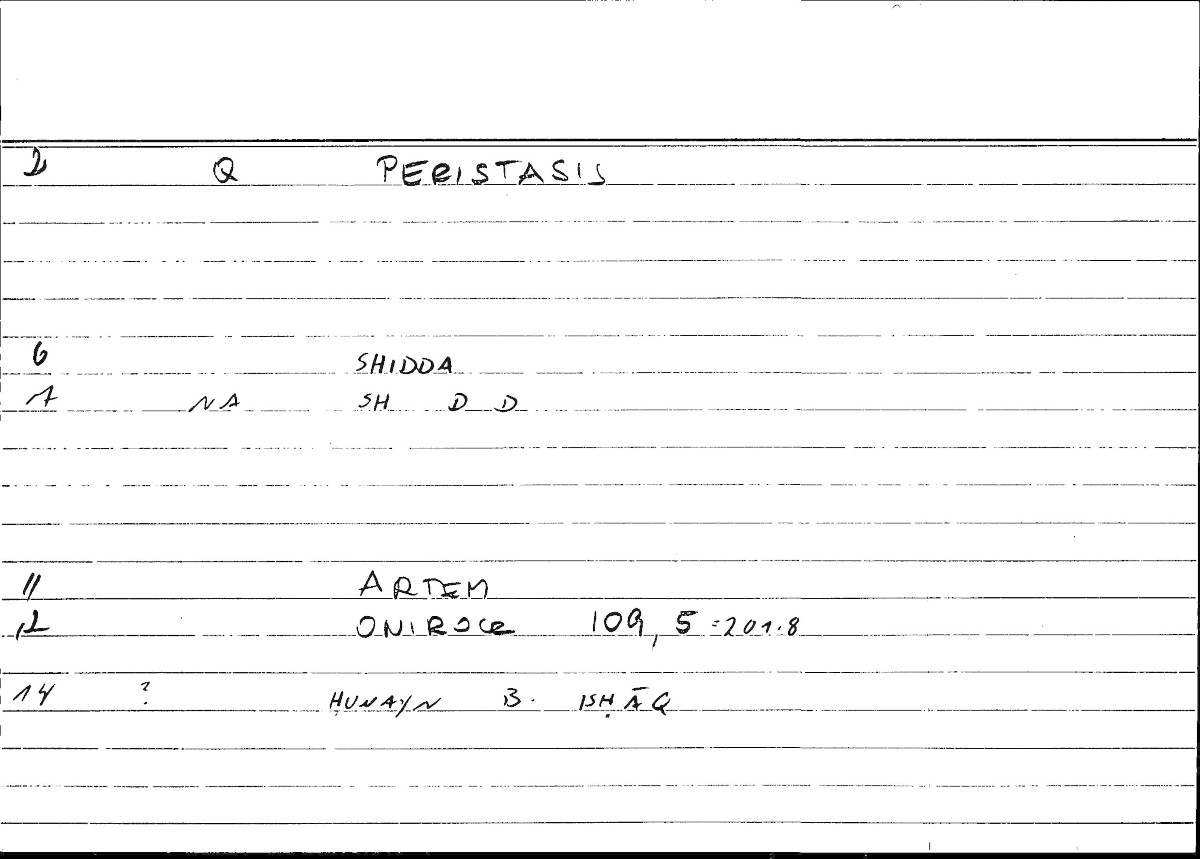 2 Q PERISTASIS
6 SHIDDA
7 NA SH D D
11 ARTEM
12 ONIROCR 109, 5 = 201.8
14 ? ḤUNAYN B. ISḤĀQ